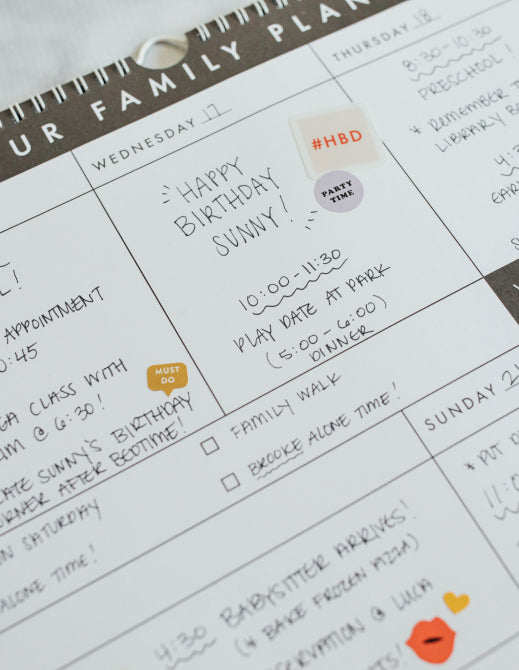 UR FAMILY PLAN
WEDNESDAY 17
HAPPY
BIRTHDAY
SUNNY!
#HBD
PARTY
TIME
10:00-11:30
PLAY DATE AT PARK
(5:00-6:00)
DINNER
THURSDAY 18
8:30-10:30
PRESCHOOL!
* REMEMBER T
LIBRARY BO
L!
APPOINTMENT
0:45
MUST
DO
CLASS WITH
@ 6:30!
SUNNY'S BIRTHDAY
AFTER BEDTIME!
FAMILY WALK
BROOKE ALONE TIME!
SATURDAY
ALONE TIME!
SUNDAY 2
* PUT
11:0
4:30 BABYSITTER ARRIVES!
(* BAKE FROZEN PIZZA)
@ LUCA